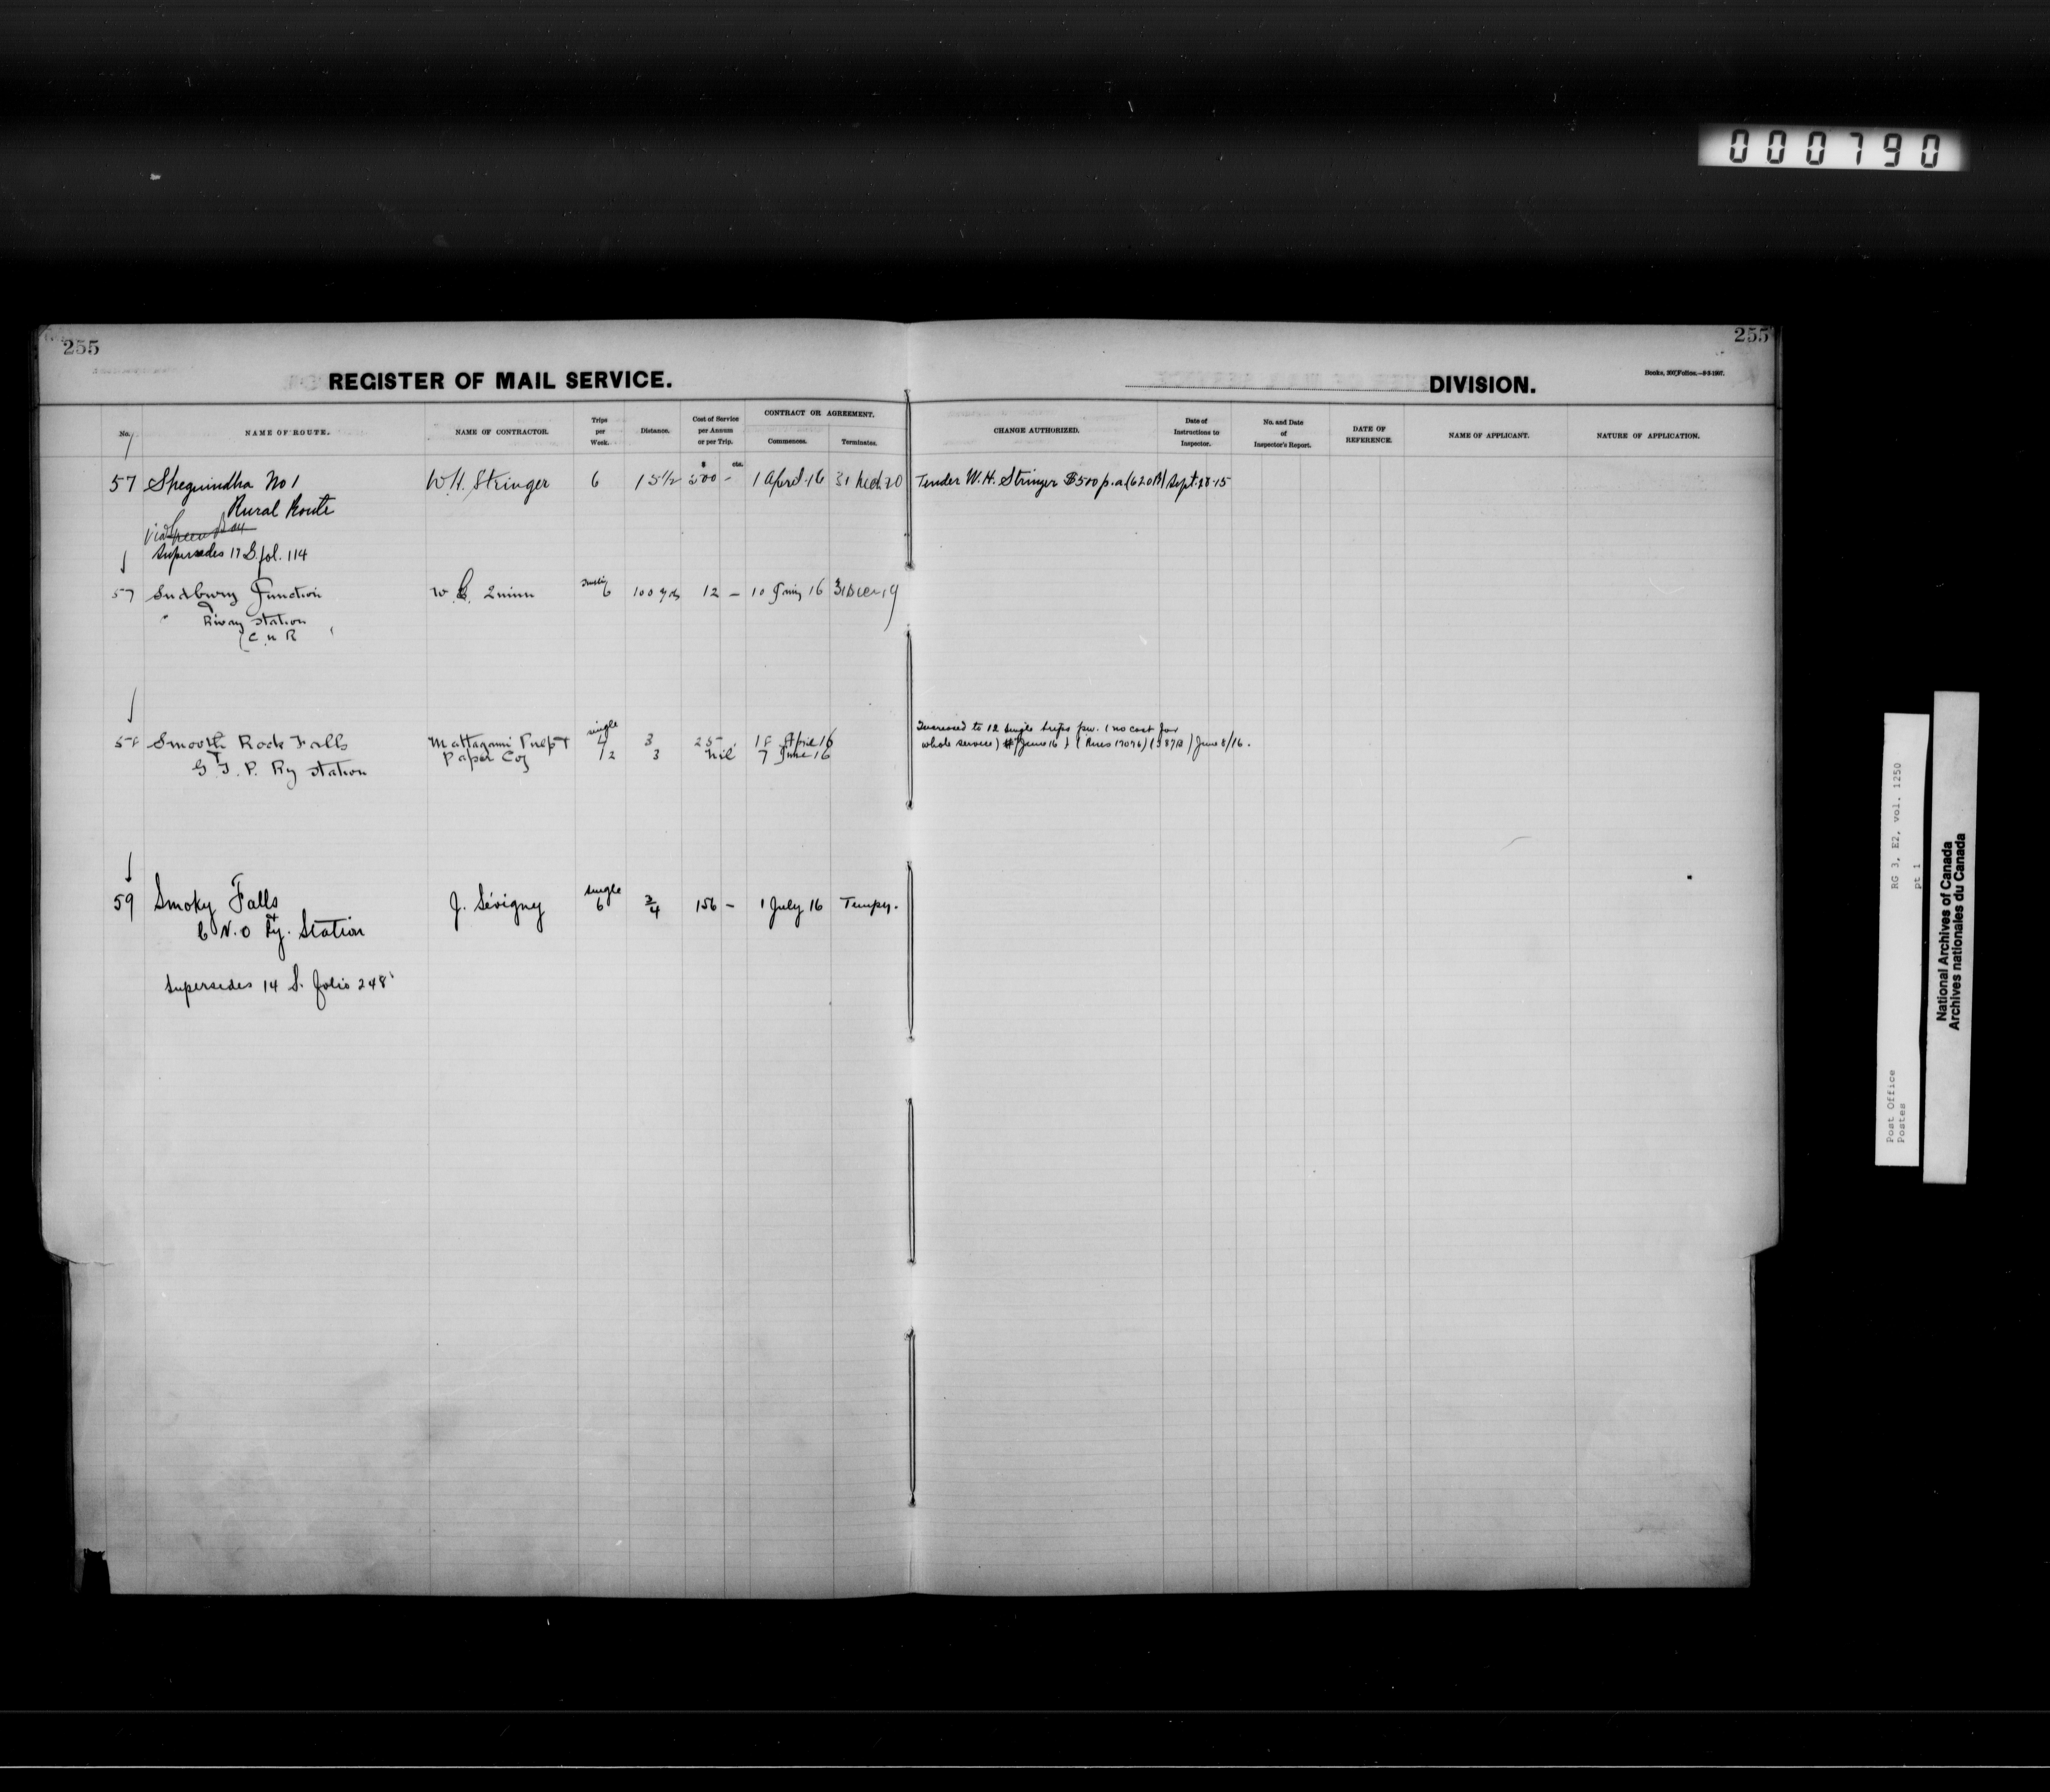 000790
255
255
REGISTER OF MAIL SERVICE.
DIVISION.
No.
NAME OF ROUTE.
NAME OF CONTRACTOR.
Trips per Week.
Distance.
Cost of Service per Annum or per Trip.
CONTRACT OR AGREEMENT.
Commences.
Terminates.
CHANGE AUTHORIZED.
Date of Instructions to Inspector.
No. and Date of Inspector's Report.
DATE OF REFERENCE.
NAME OF APPLICANT.
NATURE OF APPLICATION.
$ cts.
57 Sheguindha No 1 W.H. Stringer 6 15 1/2 500 - 1 April 16 31 Mch 20 Tender W. H. Stringer $500 p.a (620B) Sept. 28-15
Rural Route
via Green Bay
Supersedes 17 S. fol. 114
57 Sudbury Junction W. Quinn 6 100 yds 12 - 10 16 31 Dec 19
Station
C N R
58 Smooth Rock Falls Mattagami Pulp & single 3 25 18 April 16 Increased to 12 single trips pw. (no cost for
G. T. P. Ry Station Paper Coy 12 3 nil 7 June 16 whole service) 7 June 16 (17096) (587B) June 8/16.
59 Smoky Falls J. Sévigny single 6 3/4 156 - 1 July 16 Tempy.
& C N. O Ry. Station
Supersedes 14 S. folio 248
Post Office
Postes
RG 3, E2, vol. 1250
pt 1
National Archives of Canada
Archives nationales du Canada